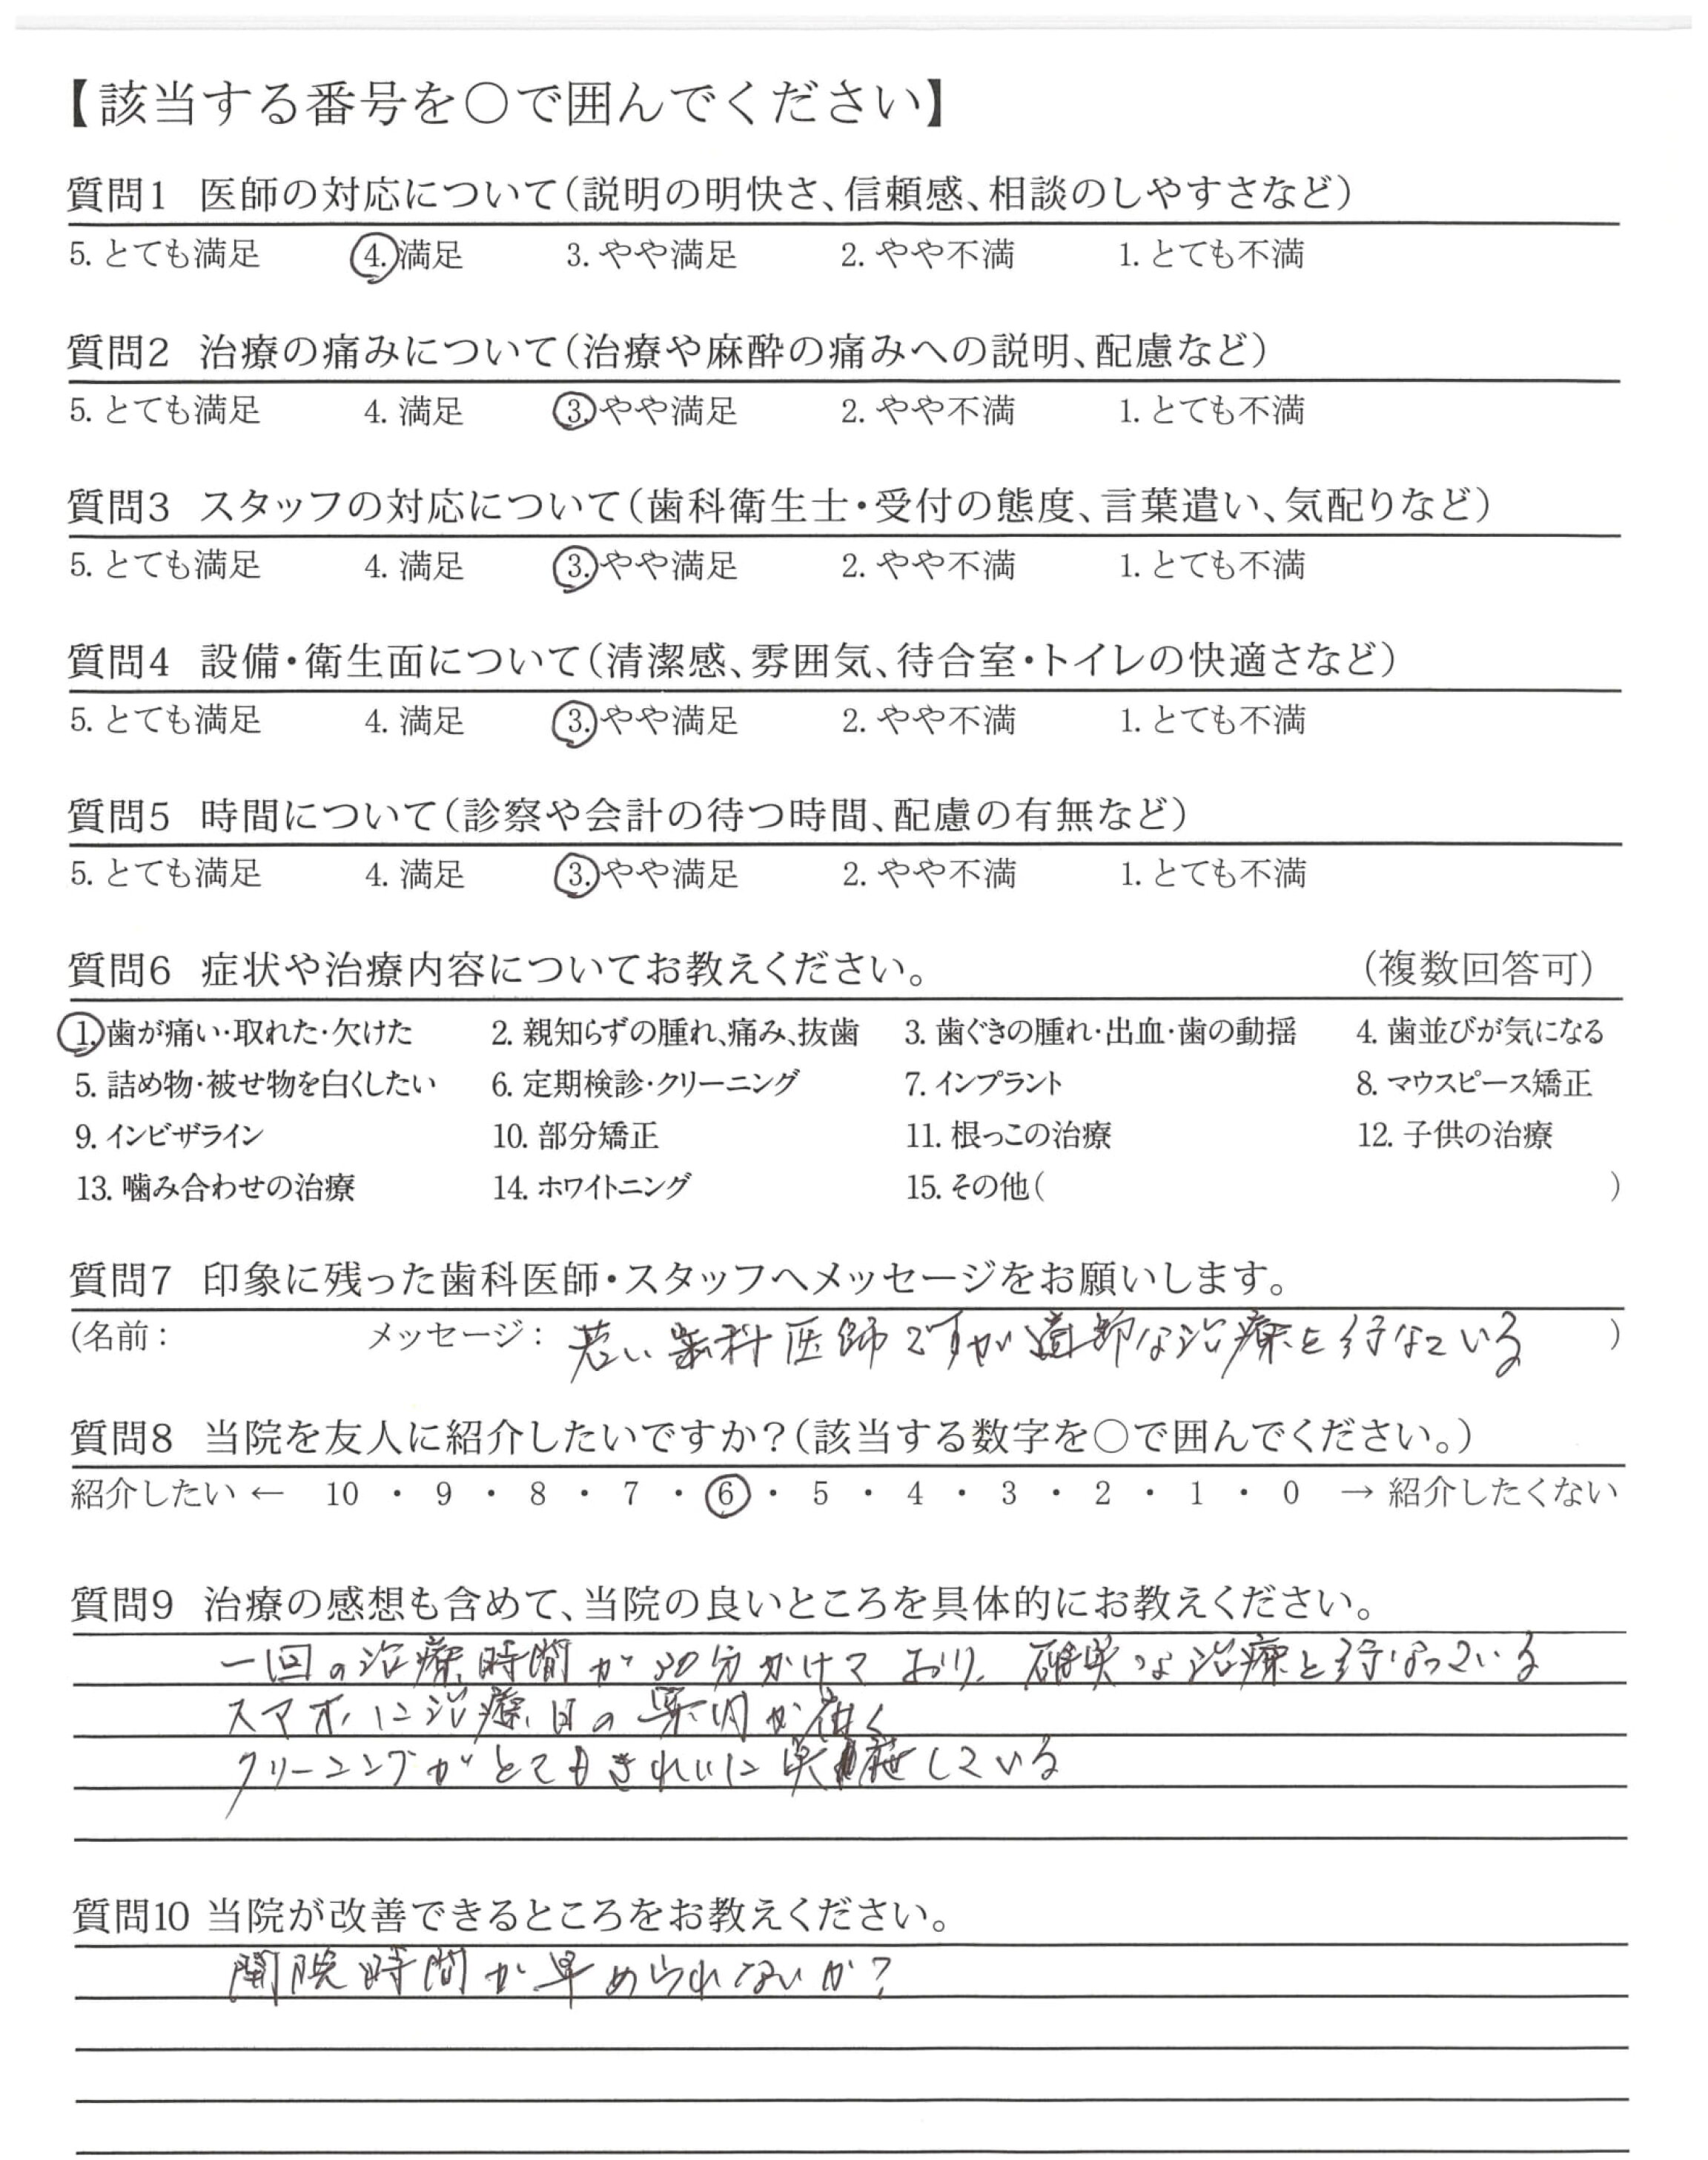 【該当する番号を○で囲んでください】
質問1 医師の対応について(説明の明快さ、信頼感、相談のしやすさなど)
5. とても満足 4. 満足 3. やや満足 2. やや不満 1. とても不満
質問2 治療の痛みについて(治療や麻酔の痛みへの説明、配慮など)
5. とても満足 4. 満足 3. やや満足 2. やや不満 1. とても不満
質問3 スタッフの対応について(歯科衛生士・受付の態度、言葉遣い、気配りなど)
5. とても満足 4. 満足 3. やや満足 2. やや不満 1. とても不満
質問4 設備・衛生面について(清潔感、雰囲気、待合室・トイレの快適さなど)
5. とても満足 4. 満足 3. やや満足 2. やや不満 1. とても不満
質問5 時間について(診察や会計の待つ時間、配慮の有無など)
5. とても満足 4. 満足 3. やや満足 2. やや不満 1. とても不満
質問6 症状や治療内容についてお教えください。 (複数回答可)
1. 歯が痛い・取れた・欠けた 2. 親知らずの腫れ、痛み、抜歯 3. 歯ぐきの腫れ・出血・歯の動揺 4. 歯並びが気になる
5. 詰め物・被せ物を白くしたい 6. 定期検診・クリーニング 7. インプラント 8. マウスピース矯正
9. インビザライン 10. 部分矯正 11. 根っこの治療 12. 子供の治療
13. 噛み合わせの治療 14. ホワイトニング 15. その他( )
質問7 印象に残った歯科医師・スタッフへメッセージをお願いします。
(名前: メッセージ: 若い歯科医師ですが な治療を行なている )
質問8 当院を友人に紹介したいですか?(該当する数字を○で囲んでください。)
紹介したい ← 10 ・ 9 ・ 8 ・ 7 ・ 6 ・ 5 ・ 4 ・ 3 ・ 2 ・ 1 ・ 0 → 紹介したくない
質問9 治療の感想も含めて、当院の良いところを具体的にお教えください。
一回の治療時間が30分かけており、確実な治療を行なっている
スマホに治療日の案内が届く
クリーニングがとてもきれいに実施している
質問10 当院が改善できるところをお教えください。
開院時間が早められないか?